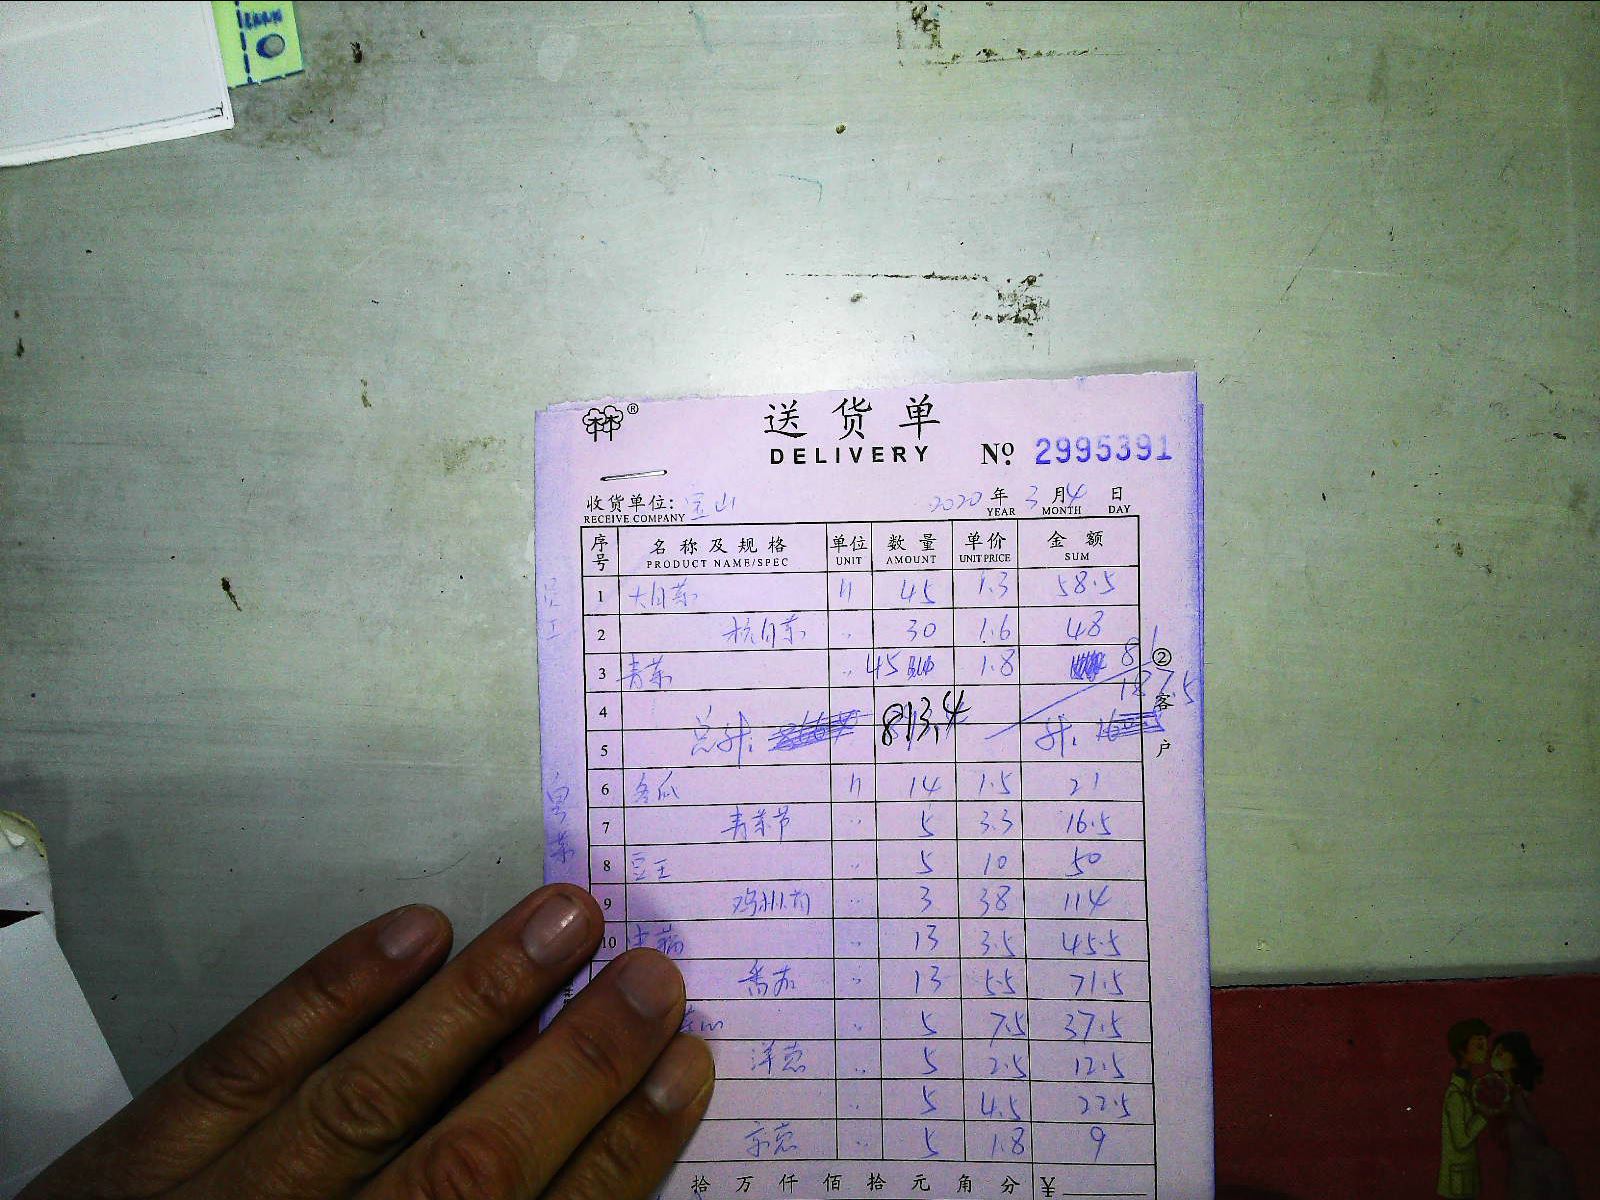 送货单
DELIVERY
No. 2995391
收货单位: 宝山 2020年 3月 4日
RECEIVE COMPANY YEAR MONTH DAY
序号 名称及规格 单位 数量 单价 金额
PRODUCT NAME/SPEC UNIT AMOUNT UNIT PRICE SUM
员工
1 大白菜 45 1.3 58.5
2 杭白菜 30 1.6 48
3 青菜 45 1.8 81
187.5
4
5 总计: 813.4 计:
6 冬瓜 14 1.5 21
7 5 3.3 16.5
8 豆王 5 10 50
9 3 38 114
10 13 3.5 45.5
番茄 13 5.5 71.5
5 7.5 37.5
洋葱 5 2.5 12.5
5 4.5 22.5
5 1.8 9
拾万仟佰拾元角分 ¥
②客户